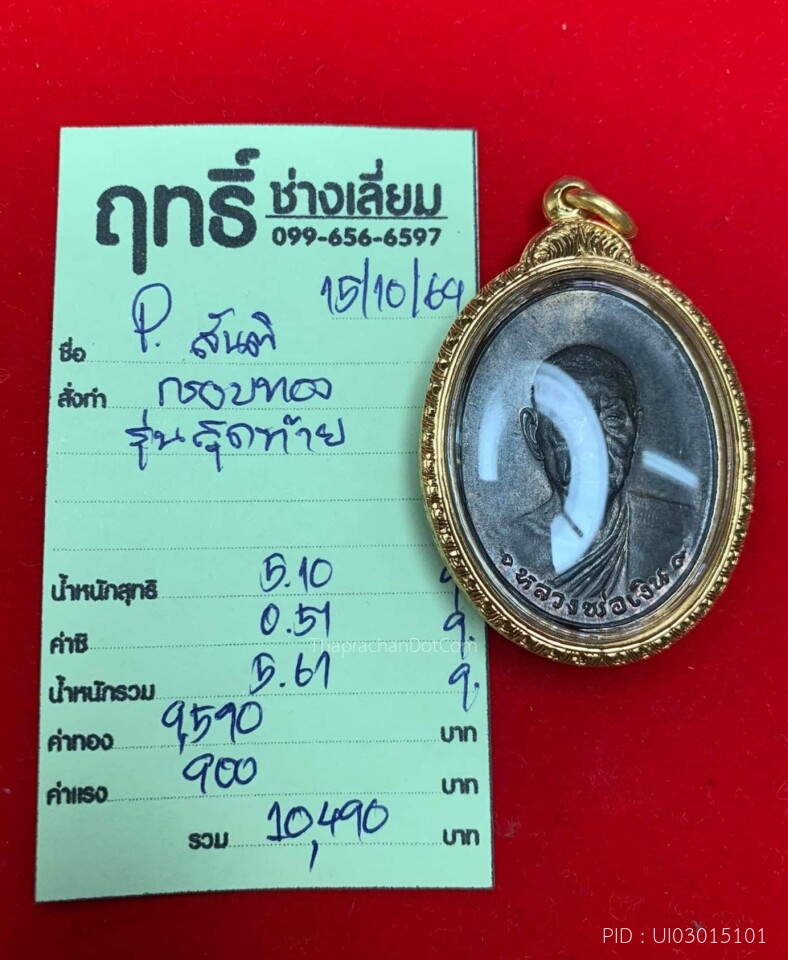 ฤทธิ์ ช่างเลี่ยม
099-656-6597
15/10/64
ชื่อ P. สันติ
สั่งทำ กรอบทอง
รุ่นสุดท้าย
น้ำหนักสุทธิ 5.10 g.
ค่าซิ 0.51 g.
น้ำหนักรวม 5.61 g.
ค่าทอง 9,590 บาท
ค่าแรง 900 บาท
รวม 10,490 บาท
หลวงพ่อเงิน
ThaprachanDotCom
PID : UI03015101